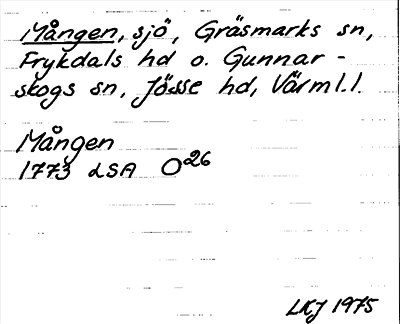 Mången, sjö, Gräsmarks sn,
Frykdals hd o. Gunnar-
skogs sn, Jösse hd, Värml.l.
Mången
1773 LSA O26
LKJ 1975